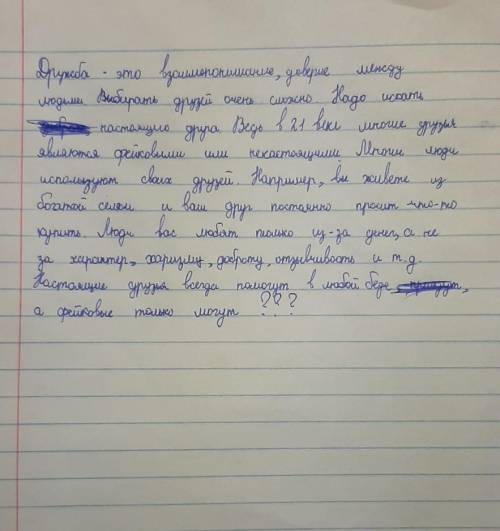 Дружба - это взаимопонимание, доверие между
людьми Выбирать друзей очень сложно. Надо искать
настоящего друга Ведь в 21 веке многие друзья
являются фейковыми или ненастоящими Многие люди
используют своих друзей. Например, вы живете из
богатой семьи и ваш друг постоянно просит что-то
купить. Люди вас любят только из-за денег, а не
за характер, харизму, доброту, отзывчивость и т.д.
Настоящие друзья всегда помогут в любой беде ,
а фейковые только могут ???